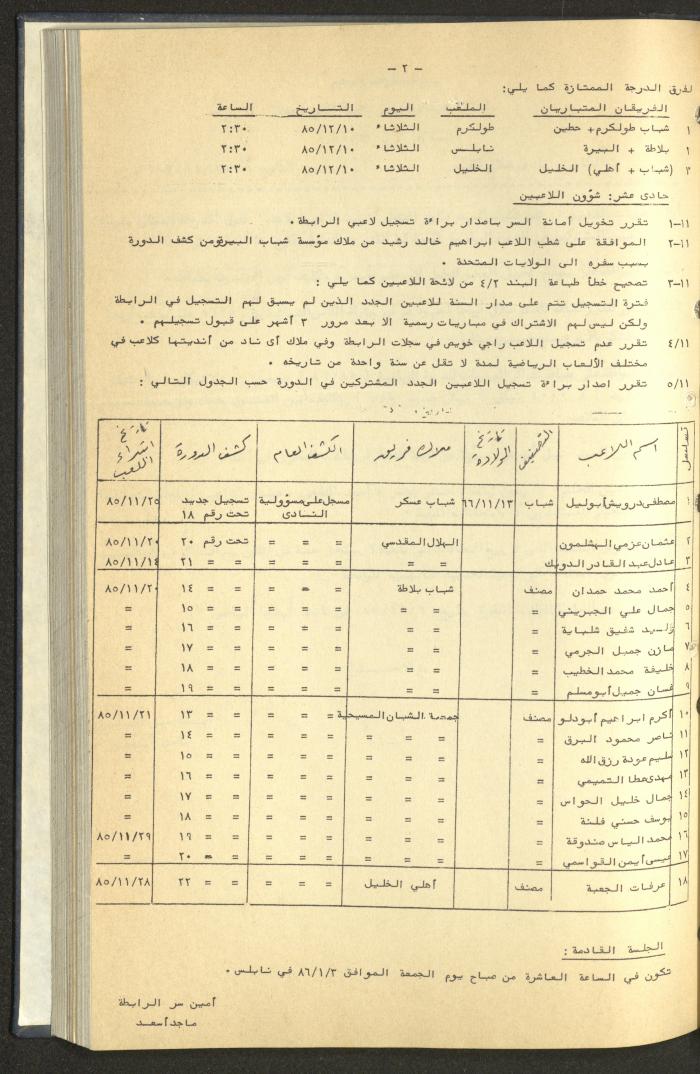 - ٢ -
لفرق الدرجة الممتازة كما يلي:
الفريقان المتباريان الملعب اليوم التاريخ الساعة
١ شباب طولكرم + حطين طولكرم الثلاثاء ٨٥/١٢/١٠ ٢:٣٠
٢ بلاطة + البيرة نابلس الثلاثاء ٨٥/١٢/١٠ ٢:٣٠
٣ (شباب + أهلي) الخليل الخليل الثلاثاء ٨٥/١٢/١٠ ٢:٣٠
حادى عشر: شؤون اللاعبين
١١-١ تقرر تخويل أمانة السر باصدار براءة تسجيل لاعبي الرابطة.
١١-٢ الموافقة على شطب اللاعب ابراهيم خالد رشيد من ملاك مؤسسة شباب البيرة ومن كشف الدورة
بسبب سفره الى الولايات المتحدة .
١١-٣ تصحيح خطأ طباعة البند ٤/٢ من لائحة اللاعبين كما يلي :
فترة التسجيل تتم على مدار السنة للاعبين الجدد الذين لم يسبق لهم التسجيل في الرابطة
ولكن ليس لهم الاشتراك في مباريات رسمية الا بعد مرور ٣ أشهر على قبول تسجيلهم .
٤/١١ تقرر عدم تسجيل اللاعب راجي خويص في سجلات الرابطة وفي ملاك أى ناد من أنديتها كلاعب في
مختلف الألعاب الرياضية لمدة لا تقل عن سنة واحدة من تاريخه .
٥/١١ تقرر اصدار براءة تسجيل اللاعبين الجدد المشتركين في الدورة حسب الجدول التالي :
تسلسل اسم اللاعب التصنيف تاريخ الولادة ملاك فريق الكشف العام كشف الدورة تاريخ ابتداء اللعب
١ مصطفى درويش أبو ليل شباب ٦٦/١١/١٣ شباب عسكر مسجل على مسؤولية تسجيل جديد ٨٥/١١/٢٥
النادى تحت رقم ١٨
٢ عثمان عزمي الهشلمون الهلال المقدسي = = = تحت رقم ٢٠ ٨٥/١١/٢٠
٣ عادل عبد القادر الدويك = = = = = = = ٢١ ٨٥/١١/١٤
٤ أحمد محمد حمدان مصنف شباب بلاطة = = = = = ١٤ ٨٥/١١/٢٠
٥ جمال علي الجبريني = = = = = = = = ١٥ =
٦ وليد شفيق شلباية = = = = = = = = ١٦ =
٧ مازن جميل الجرمي = = = = = = = = ١٧ =
٨ خليفة محمد الخطيب = = = = = = = = ١٨ =
٩ غسان جميل أبو مسلم = = = = = = = = ١٩ =
١٠ أكرم ابراهيم أبو دلو مصنف جمعية الشبان المسيحية = = = = = ١٣ ٨٥/١١/٢١
١١ ناصر محمود البرق = = = = = = = = = ١٤ =
١٢ سليم عودة رزق الله = = = = = = = = = ١٥ =
١٣ مهدى عطا التميمي = = = = = = = = = ١٦ =
١٤ جمال خليل الحواس = = = = = = = = = ١٧ =
١٥ يوسف حسني فلنة = = = = = = = = = ١٨ =
١٦ محمد الياس صندوقة = = = = = = = = = ١٩ ٨٥/١١/٢٩
١٧ عيسى أيمن القواسمي = = = = = = = = = ٢٠ =
١٨ عرفات الجعبة مصنف أهلي الخليل = = = = = ٢٢ ٨٥/١١/٢٨
الجلسة القادمة :
تكون في الساعة العاشرة من صباح يوم الجمعة الموافق ٨٦/١/٣ في نابلس.
أمين سر الرابطة
ماجد أسعد